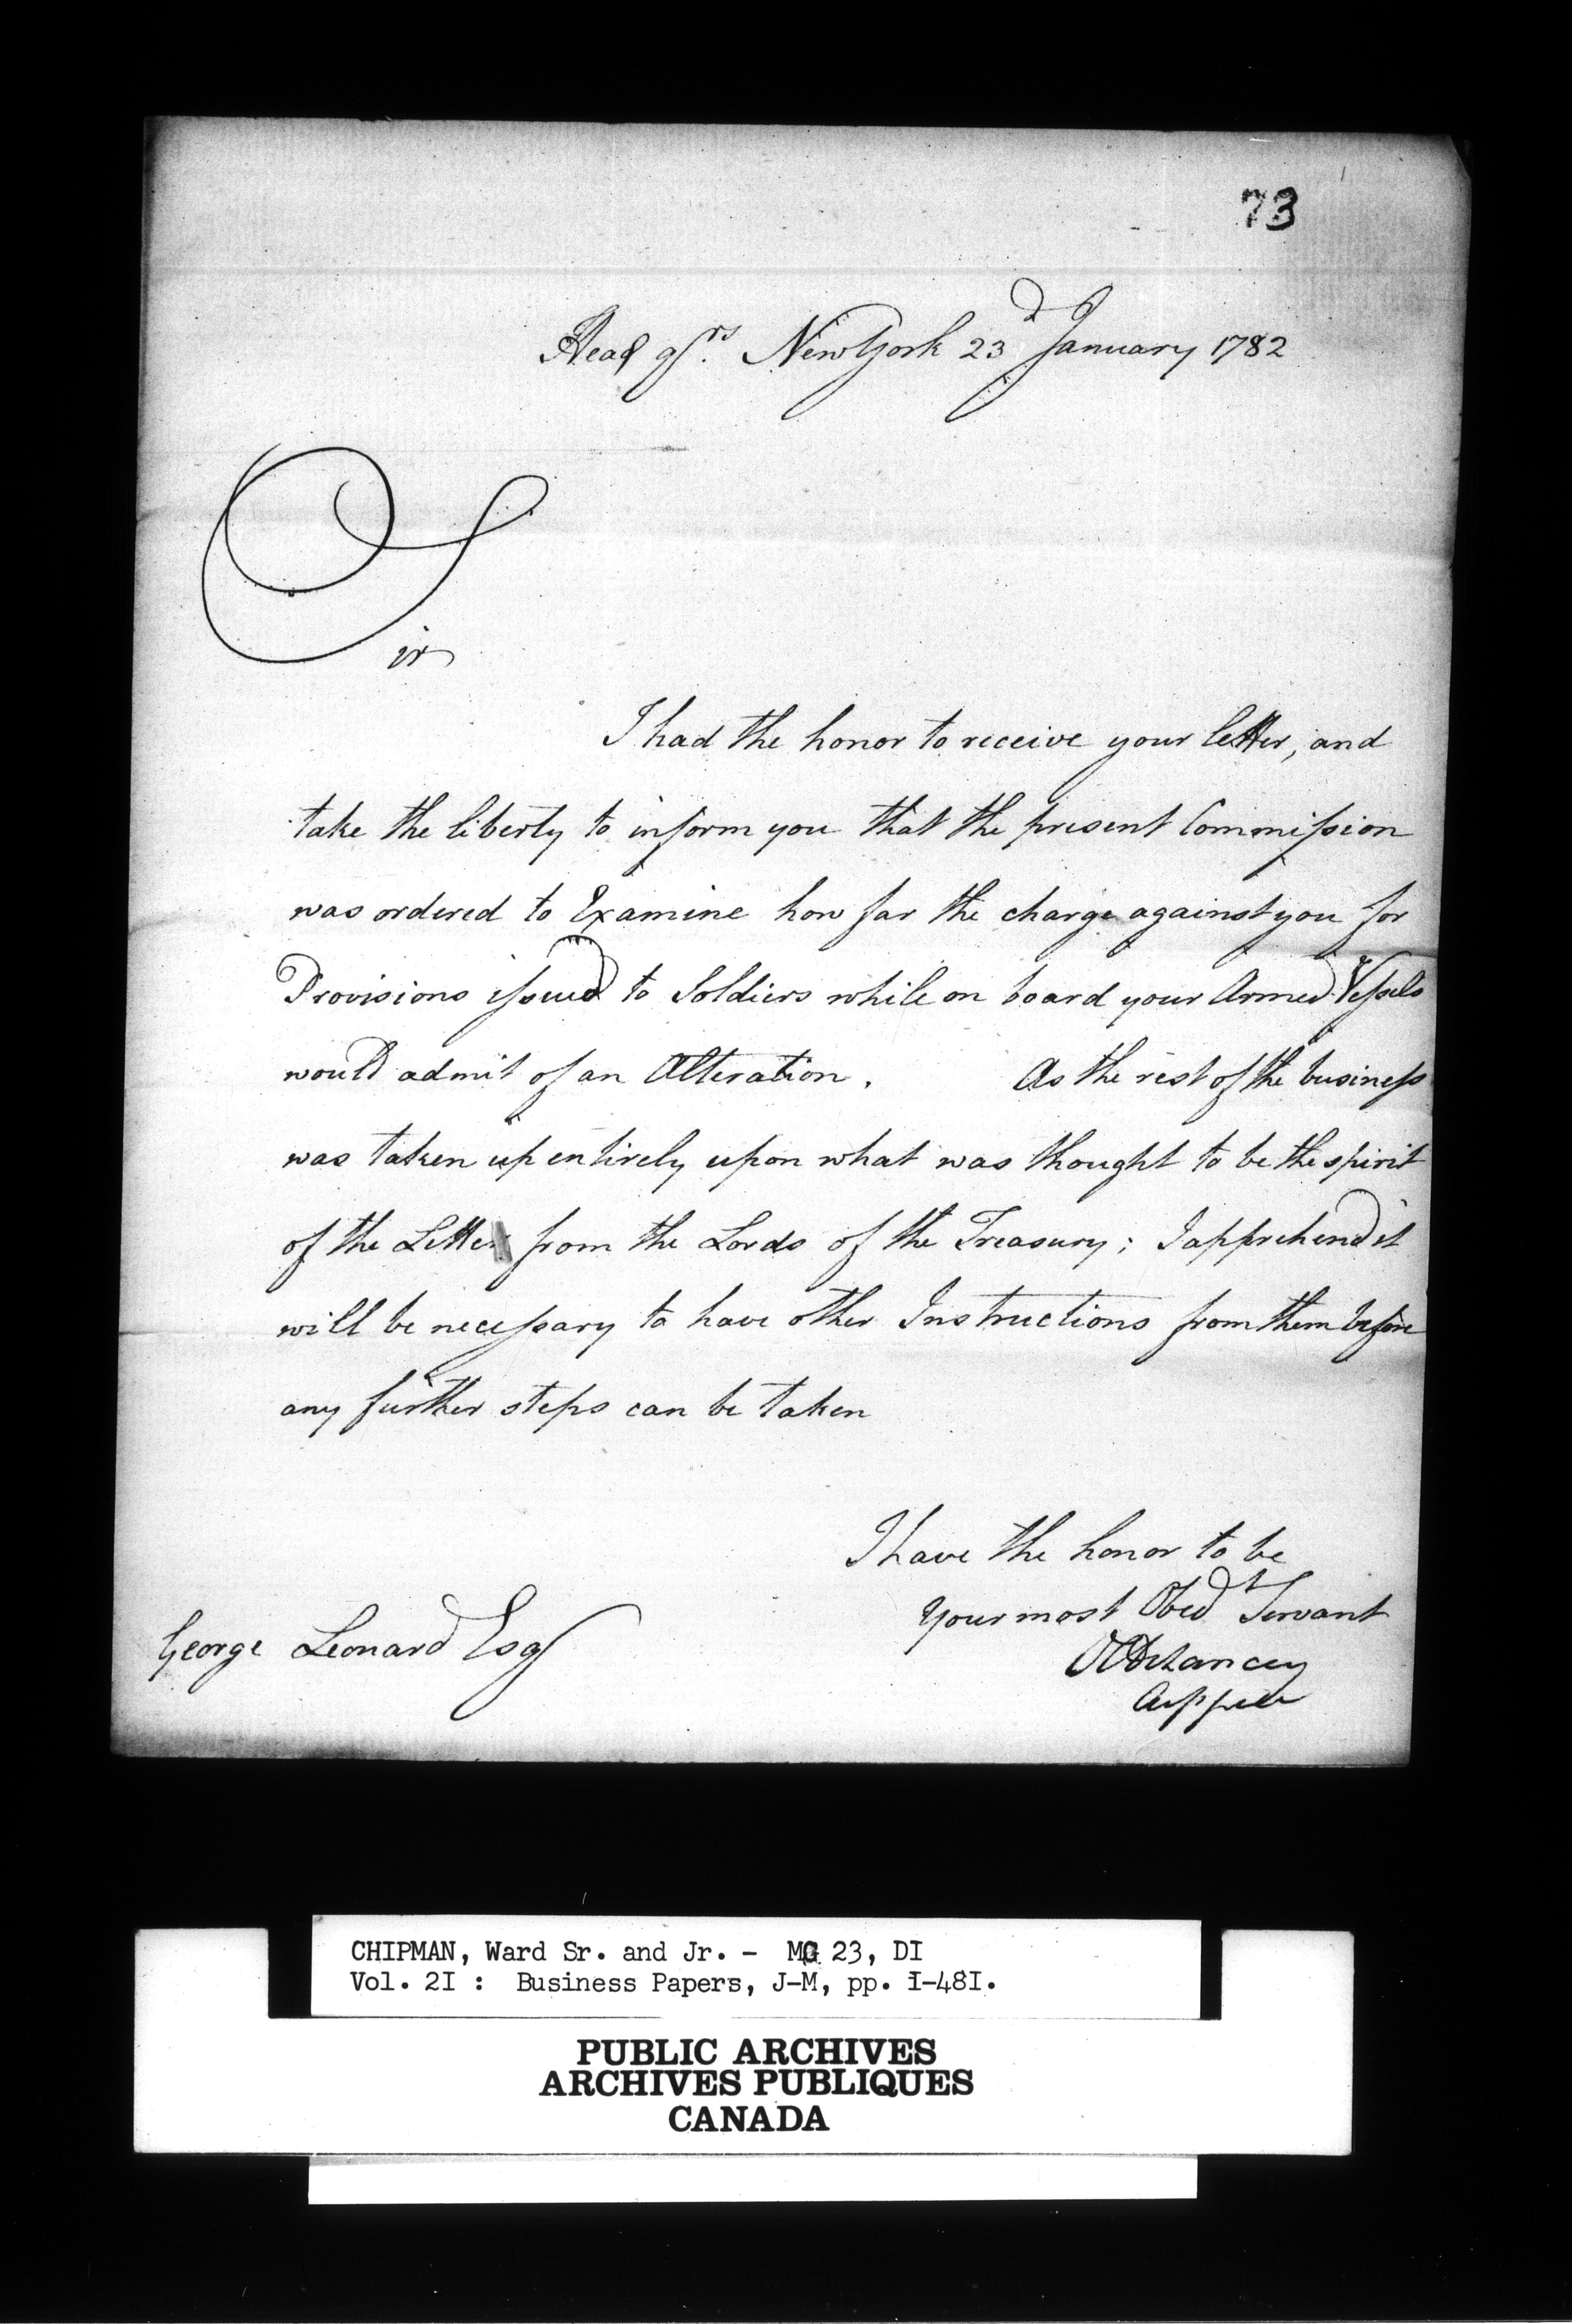 73
Head qrs. New York 23d January 1782
Sir
I had the honor to receive your letter, and
take the liberty to inform you that the present Commission
was ordered to Examine how far the charge against you for
Provisions issued to Soldiers while on board your Armed Vessels
would admit of an Alteration. As the rest of the business
was taken up entirely upon what was thought to be the spirit
of the Letter from the Lords of the Treasury; I apprehend it
will be necessary to have other Instructions from them before
any further steps can be taken
I have the honor to be
Your most Obedt Servant
DeLancey
George Leonard Esqr
CHIPMAN, Ward Sr. and Jr. - MG 23, DI
Vol. 2I : Business Papers, J-M, pp. I-48I.
PUBLIC ARCHIVES
ARCHIVES PUBLIQUES
CANADA